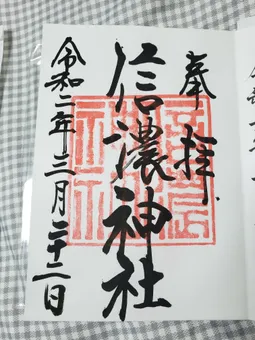 奉拝
信濃神社
令和二年三月二十二日